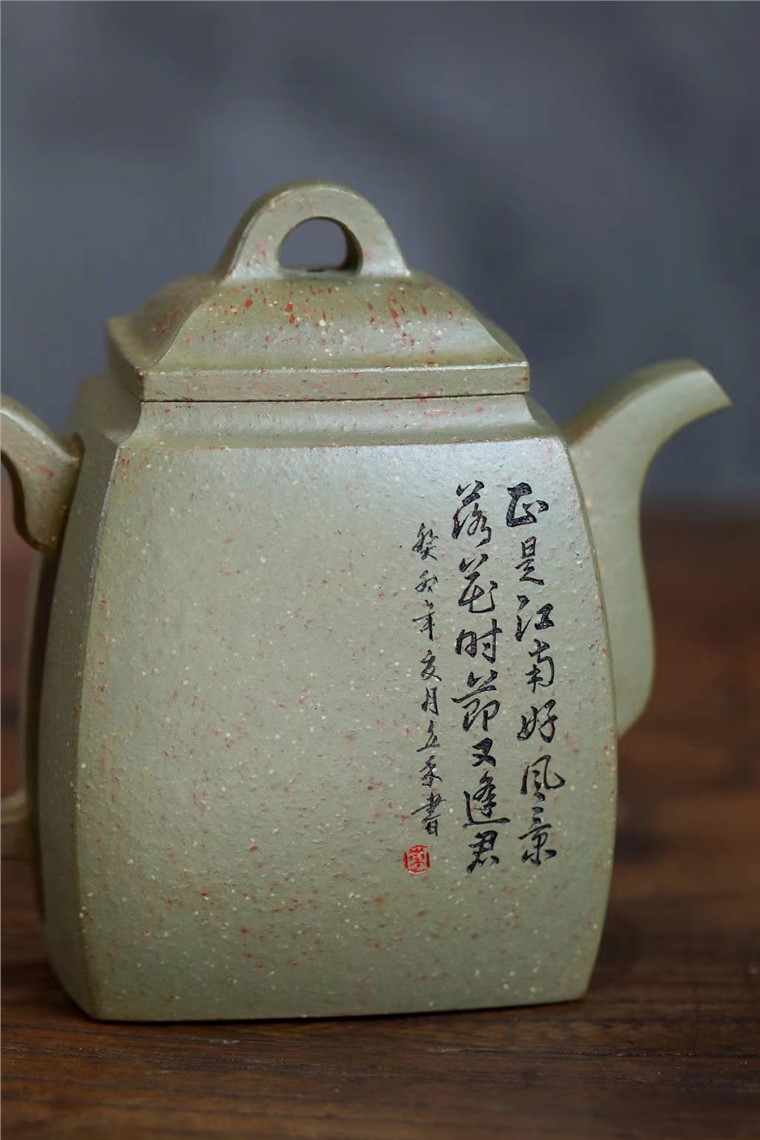 正是江南好风景
落花时节又逢君
癸卯年亥月立禾書